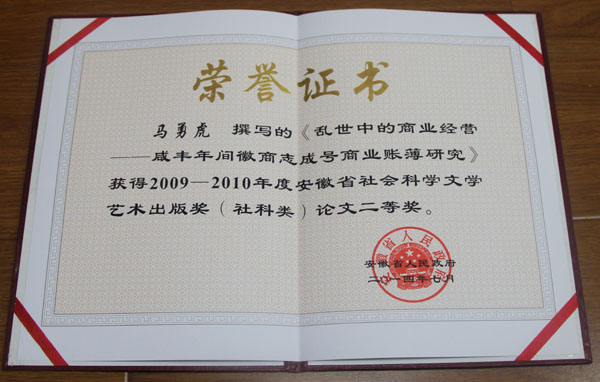 荣誉证书
马勇虎 撰写的《乱世中的商业经营
——咸丰年间徽商志成号商业账薄研究》
获得2009—2010年度安徽省社会科学文学
艺术出版奖（社科类）论文二等奖。
安徽省人民政府
二〇一四年七月
安徽省人民政府